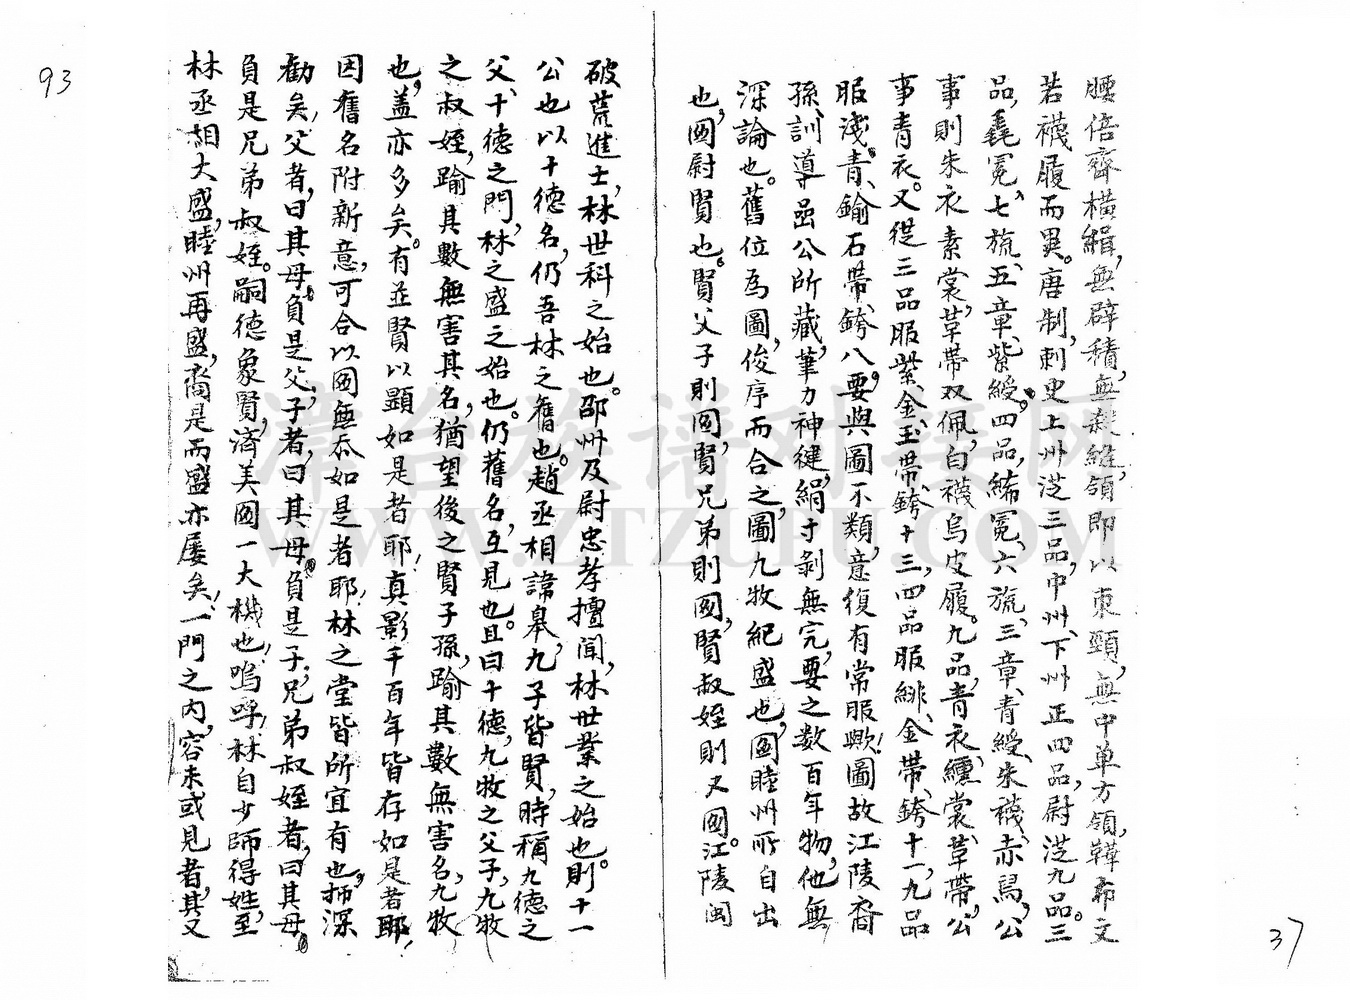 腰倍齊橫緝無辟積無殺縫領即以束頸無中单方領鞸布文
若襪履而異。唐制,刺史上州從三品,中州、下州正四品,尉從九品。三
品,毳冕、七旒、五章、紫綬。四品,絺冕、六旒、三章、青綬、朱襪、赤舄,公
事則朱衣素裳,革帶双佩,白襪烏皮履。九品,青衣、纁裳、革帶,公
事青衣。又從三品服紫、金玉帶銙十三,四品服緋、金帶、銙十一,九品
服淺青、鍮石帶、銙八。要與圖不類,意復有常服歟!圖故江陵裔
孫、訓導嵒公所藏,筆力神健,絹寸剝無完,要之数百年物,他無
深論也。舊位為圖,俊序而合之,圖九牧紀盛也,圖睦州所自出
也,圖尉賢也。賢父子則圖,賢兄弟則圖,賢叔姪則又圖。江陵闽
破荒進士,林世科之始也。邵州及尉忠孝擅闻,林世業之始也。則十一
公也以十德名,仍吾林之舊也。趙丞相諱皋,九子皆賢,時稱九德之
父、十德之門,林之盛之始也。仍舊名,互見也。且曰十德,九牧之父子,九牧
之叔姪,踰其數無害其名,猶望後之賢子孫,踰其數無害名,九牧
也,盖亦多矣。有並賢以顕如是者耶,真影千百年皆存如是者耶!
因舊名附新意,可合以圖無忝如是者耶!林之堂皆所宜有也,抑深
勸矣,父者,曰其毋負是父,子者,曰其毋負是子,兄弟叔姪者,曰其毋
負是兄弟叔姪。嗣德象賢,濟美圖一大機也!嗚呼,林自少師得姓,至
林丞相大盛,睦州再盛,裔是而盛亦屡矣!一門之内,容未或見者,其又
93
37
津台族谱对接网
WWW.ZTZUPU.COM